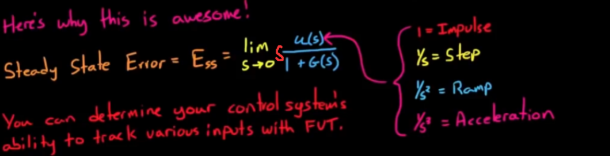 Here's why this is awesome!
Steady State Error = Ess = lim s→0 s u(s) / 1 + G(s)
1 = Impulse
1/s = Step
1/s² = Ramp
1/s³ = Acceleration
You can determine your control system's
ability to track various inputs with FVT.